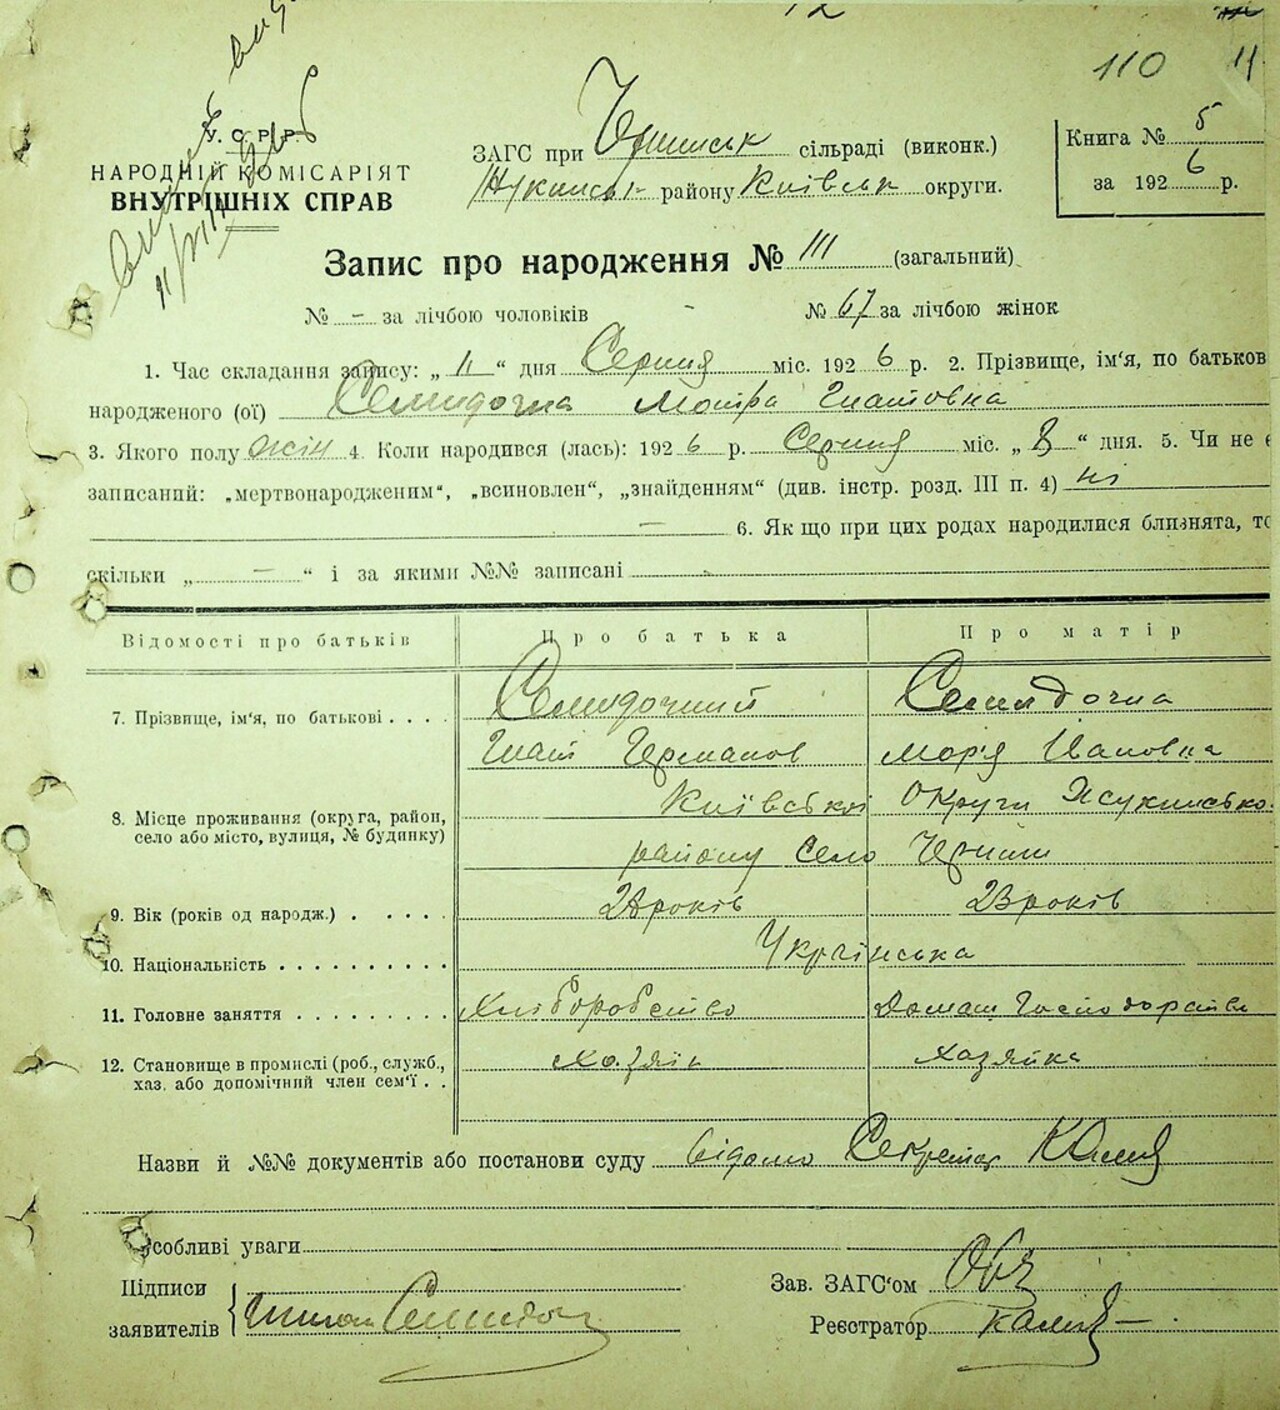 12
110 11
У. С. Р. Р.
НАРОДНІЙ КОМІСАРІЯТ
ВНУТРІШНІХ СПРАВ
ЗАГС при сільраді (виконк.)
району Київськ округи.
Книга № 5
за 1926 р.
Запис про народження № 111 (загальний)
№ - за лічбою чоловіків № 67 за лічбою жінок
1. Час складання запису: „ 11 “ дня Серпня міс. 1926 р. 2. Прізвище, ім'я, по батьков
народженого (ої) Семидочна Мотра Гнатовна
3. Якого полу жін 4. Коли народився (лась): 1926 р. Серпня міс. „ 8 “ дня. 5. Чи не є
записаний: „мертвонародженим“, „всиновлен“, „знайденням“ (див. інстр. розд. III п. 4) ні
— 6. Як що при цих родах народилися близнята, то
скільки „ — “ і за якими №№ записані
Відомості про батьків Про батька Про матір
7. Прізвище, ім'я, по батькові . . . . Семидочний Семидочна
Гнат Германов Мар'я Івановна
8. Місце проживання (округа, район, Київської Округи
село або місто, вулиця, № будинку) району Село Черниш
9. Вік (років од народж.) . . . . . років 23 років
10. Національність . . . . . . . . . . Українська
11. Головне заняття . . . . . . . . . Хліборобство Домаш Господарство
12. Становище в промислі (роб., служб., Хазяін Хазяйка
хаз. або допомічний член сем'ї . .
Назви й №№ документів або постанови суду Відомо Секретар
Особливі уваги
Підписи
заявителів
Зав. ЗАГС'ом
Реєстратор